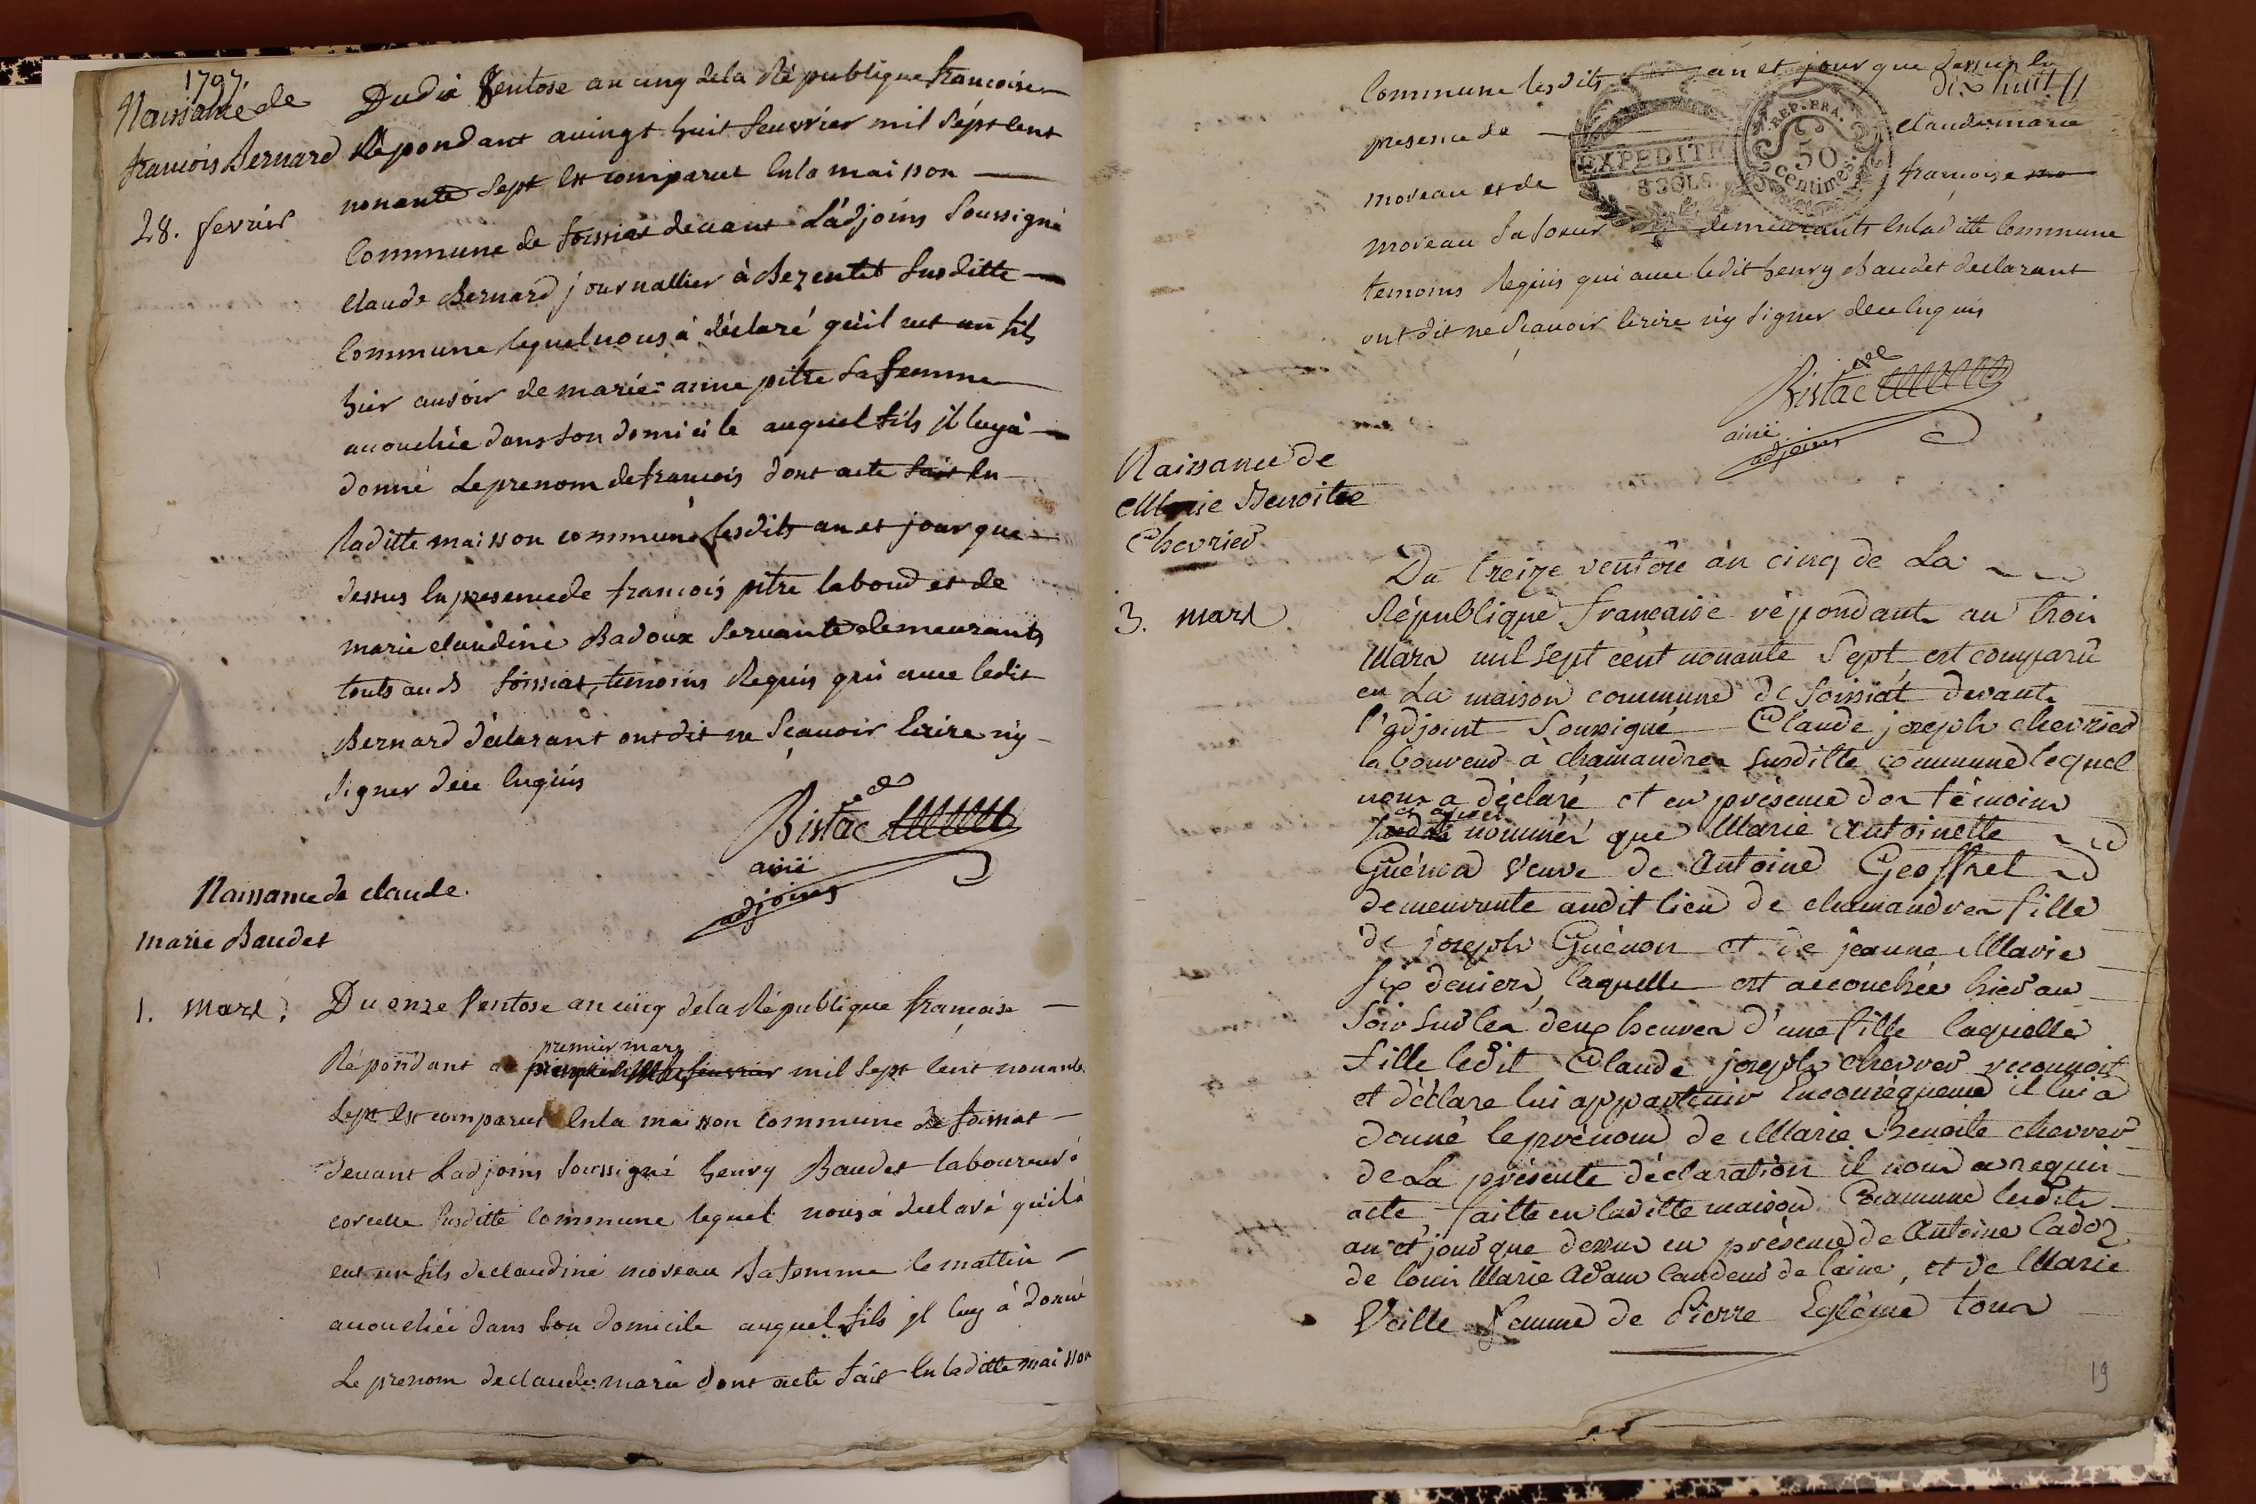 1797.
Naissance de
francois Bernard
28. fevrier
Du dix Ventose an cinq dela République francoise
Répondant a vingt huit feuvrier mil sépt cent
nonante sept Est comparut En la maisson
Commune de foissiat devant L'adjoins soussigné
Claude Bernard journallier à Bezentet susditte
Commune lequel nous à déclaré qu'il eut un fils
hier au soir de marie-anne pitre sa femme
accouchée dans son domicile auquel fils il luy à
donné Le prenom de francois dont acte fait En
laditte maisson commune lesdits an et jour que
dessus En presence de francois pitre laboud et de
marie claudine Badoux servante demeurants
touts aud foissiat, temoins Requis qui avec ledit
Bernard déclarant ont dit ne sçavoir Ecrire n'y
signer de ce Enquis
Bistac
ainé
adjoins
Naissance de claude
marie Baudet
1. Mars.
Du onze Ventose an cinq dela République francoise
premier mars
Répondant a mil sept cent nonante
sept Est comparut En la maisson commune de foissiat
devant L'adjoins soussigné henry Baudet laboureur à
corcelle susditte commune lequel nous à declaré qu'il à
eut un fils de claudine moreau sa femme le mattin
accouchée dans son domicile auquel fils il luy à donné
Le prenom de claude marie dont acte fait En laditte maisson
Commune lesdits an et jour que dessus En
dix huit
presence de claude marie
moreau et de francoise mo
moreau sa soeur demeurants En laditte Commune
temoins Requis qui avec ledit henry Baudet declarant
ont dit ne sçavoir Ecrire n'y signer de ce Enquis
EXPEDITIE
8 SOLS
REP. FRA.
50
centimes.
Bistac
ainé
adjoins
Naissance de
Marie Benoitte
Chevrier
3. mars
Du treize ventôse an cinq de La
République française répondant au trois
Mars mil sept cent nonante sept est comparû
en La maison commune de foissiat devant
l'adjoint soussigné Claude joseph chevrier
laboureur à chamandrer susditte commune lequel
nous a déclaré et en présence des témoins
ci après
nommés que Marie Antoinette
Guénon veuve de Antoine Geoffret
demeurante audit lieu de chamandrer fille
de joseph Guénon et de jeanne Marie
six deniers laquelle est accouchée hier au
soir sur les deux heures d'une fille laquelle
fille ledit Claude joseph chevrier reconnoit
et déclare lui appartenir Enconséquence il lui a
donné le prénom de Marie Benoite chevrier
de La présente déclaration il nous a requis
acte faitte en laditte maison Commune lesdits
an et jour que dessus en présence de Antoine Cadoz
de louis Marie Adam Cardeur de laine, et de Marie
Veille femme de Pierre Egléme tous
19